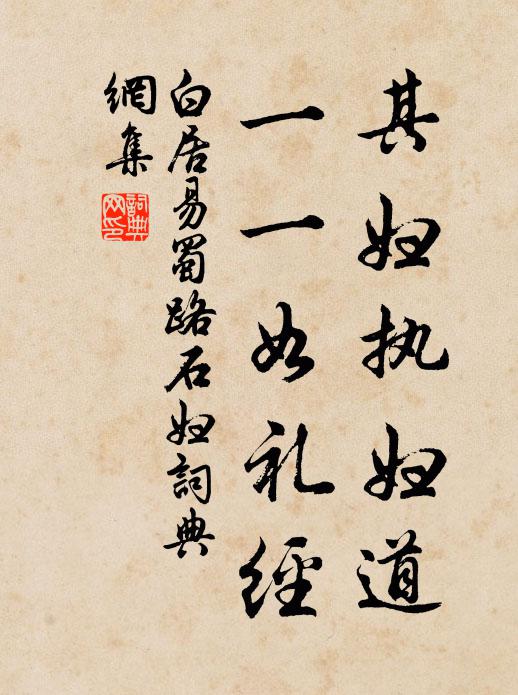 其妇执妇道
一一如礼經
白居易蜀路石妇詞典
網集
詞典
网印